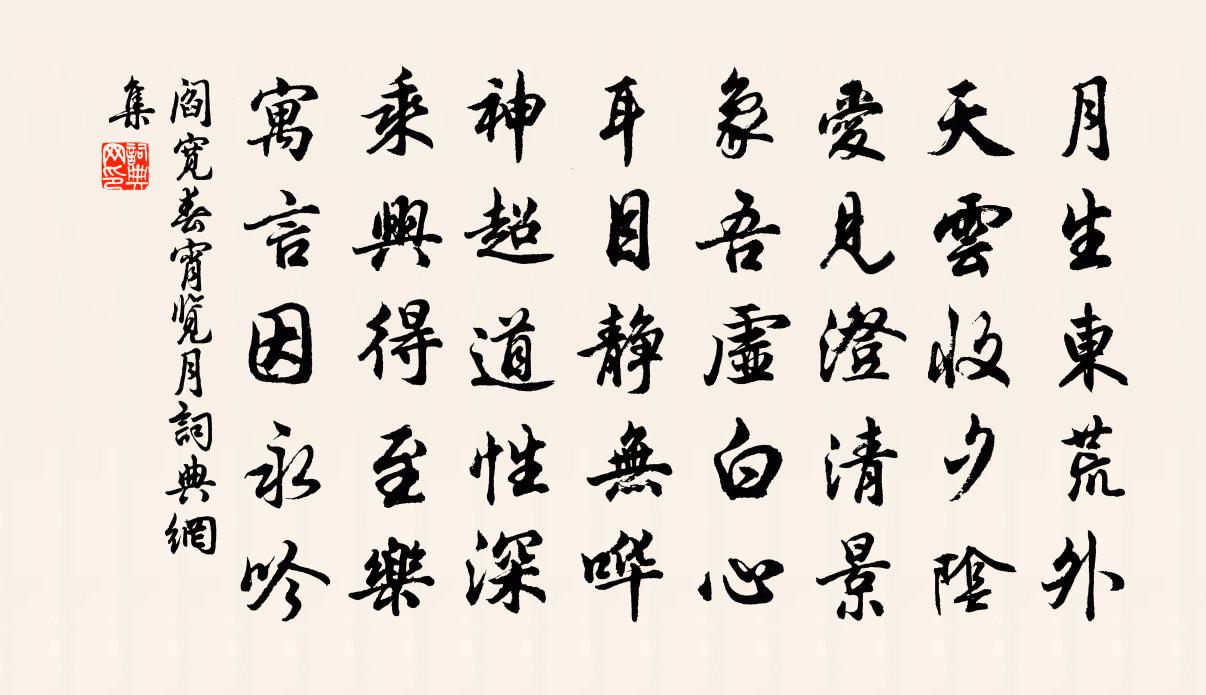 月生東荒外
天雲收夕陰
愛見澄清景
象吾虛白心
耳目靜無嘩
神超道性深
乘興得至樂
寓言因永吟
閻寬春宵览月詞典網
集
詞典網印